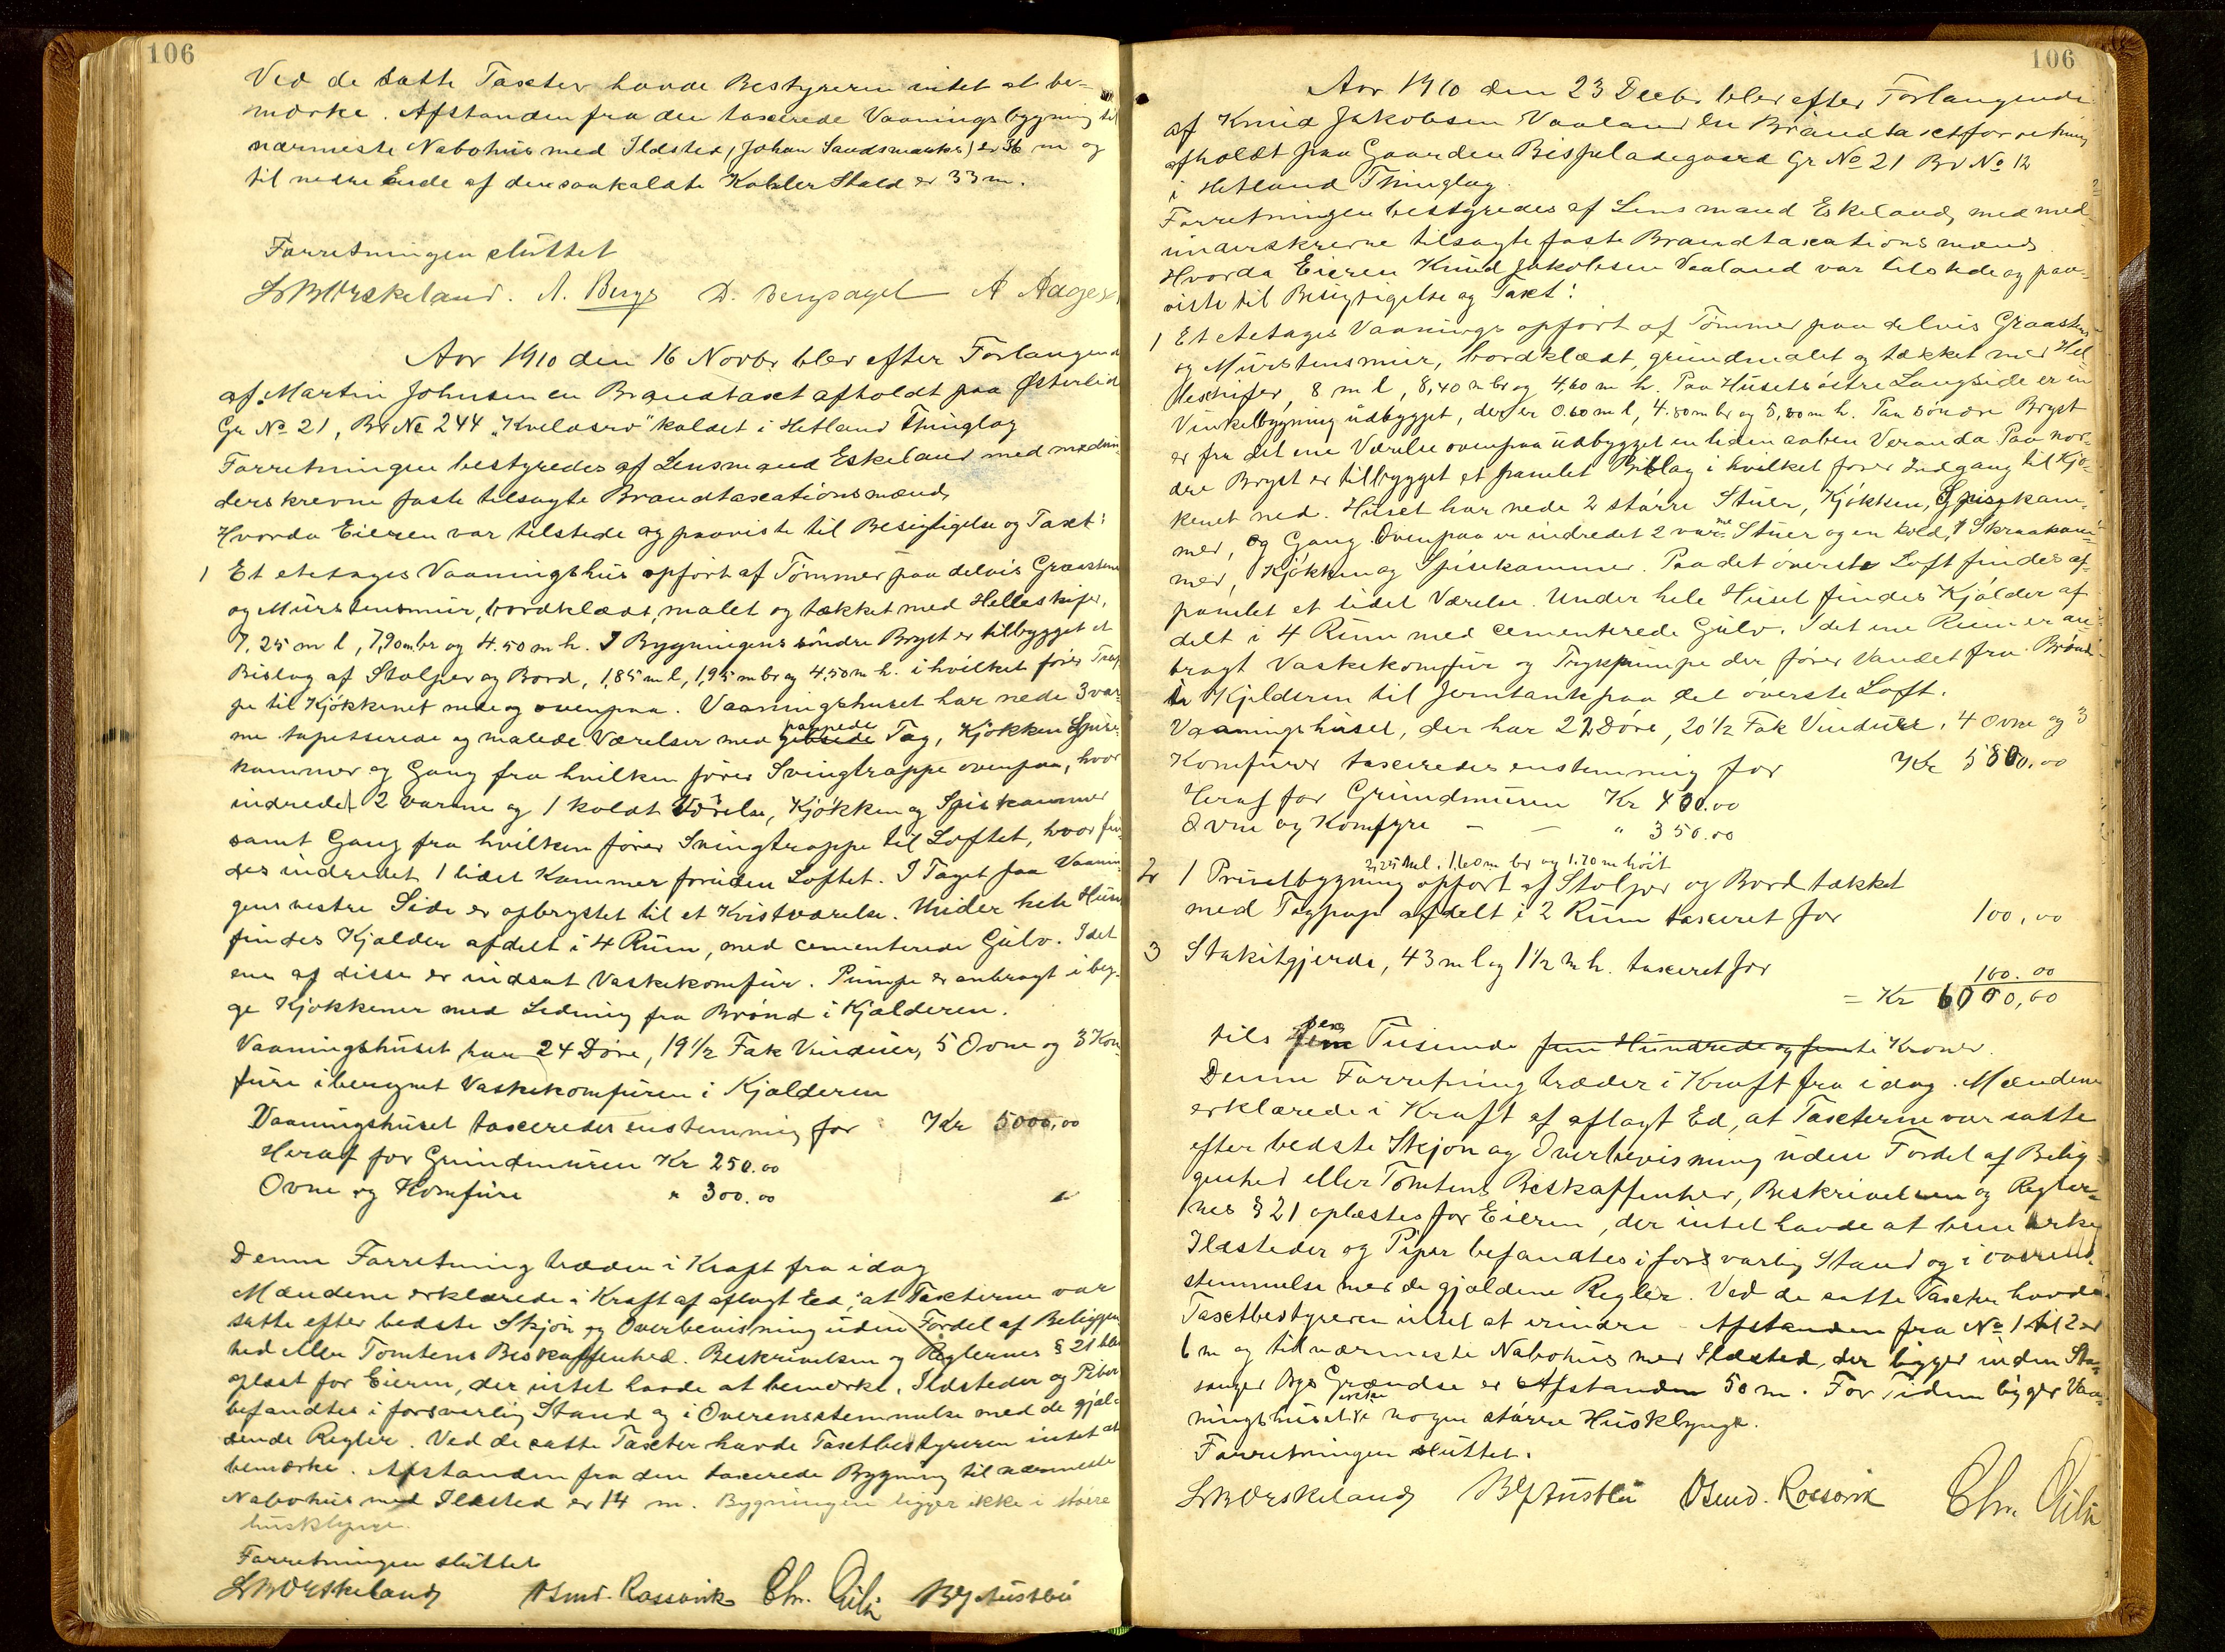 106
Ved de satte Taxter havde Bestyreren intet at be-
mærke. Afstanden fra den taxerede Vaaningsbygning til
nærmeste Nabohus med Ildsted (Johan Sandsmarks) er 36 m og
til nedre Ende af den saakaldte Kahler Stald er 33 m.
Forretningen sluttet
A. Berge D. Bergsagel A Aages
Aar 1910 den 16 Novbr blev efter Forlangende
af Martin Johnsen en Brandtaxt afholdt paa Østerlid
Gr No 21, Br No 244 "Kvelasro" kaldet i Hetland Thinglag
Forretningen bestyredes af Lensmand Eskeland med medun-
derskrevne faste tilsagte Brandtaxationsmænd,
Hvorda Eieren var tilstede og paaviste til Besigtigelse og Taxt:
1 Et etetages Vaaningshus opført af Tømmer paa delvis Graastens
og Mürstensmür, bordklædt, malet og tækket med Helleskifer,
9,25 m l, 7,90 m br og 4.50 m h. I Bygningens søndre Bryst er tilbygget et
Bislag af Stolper og Bord, 1,85 m l, 1,95 m br og 4,50 m h. i hvilket fører Trap-
pe til Kjøkkenet nede og ovenpaa. Vaaningshuset har nede 3 var-
me tapetserede og malede Værelser med gibsede pappede Tag, Kjøkken Spise-
kammer og Gang fra hvilken fører Svingtrappe ovenpaa, hvor
indredet 2 varme og 1 koldt Værelse, Kjøkken og Spiskammer
samt Gang fra hvilken fører Svingtrappe til Loftet, hvor fin-
des indredet 1 lidet Kammer foruden Loftet. I Taget paa Vaanin-
gens vestre Side er opbrystet til et Kvistværelse. Under hele Huset
findes Kjælder afdelt i 4 Rüm, med cementerede Gülv. I det
ene af disse er indsat Vaskekomfür. Pumpe er anbragt i beg-
ge Kjøkkener med Ledning fra Brønd i Kjælderen.
Vaaningshüset har 24 Døre, 19 1/2 Fak Vinduer, 5 Ovne og 3 Kom-
füre iberegnet Vaskekomfüren i Kjælderen
Vaaningshüset taxeredes enstemmig for Kr 5000,00
Heraf for Grundmuren Kr 250.00
Ovne og Komfüre " 300.00
Denne Forretning træder i Kraft fra idag
Mændene erklærede i Kraft af aflagt Ed, at Taxterne var
satte efter bedste Skjøn og Overbevisning uden Fordel af Beliggen-
hed eller Tomtens Beskaffenhed. Beskrivelsen og Reglernes § 21 blev
oplæst for Eieren, der intet havde at bemærke. Ildsteder og Piber
befandtes i forsvarlig Stand og i Overensstemmelse med de gjæl-
dende Regler. Ved de satte Taxter havde Taxtbestyreren intet at
bemærke. Afstanden fra den taxerede Bygning til nærmeste
Nabohus med Ildsted er 14 m. Bygningen ligger ikke i større
husklynge.
Forretningen sluttet
Osmd. Rossavik
106
Aar 1910 den 23 Decbr blev efter Forlangende
af Knud Jakobsen Vaaland en Brandtaxtforretning
afholdt paa Gaarden Bispeladegaard Gr No 21 Br No 12
i Hetland Thinglag.
Forretningen bestyredes af Lensmand Eskeland, med med-
underskrevne tilsagte faste Brandtaxationsmænd
Hvorda Eieren Knud Jakobsen Vaaland var tilstede og paa-
viste til Besigtigelse og Taxt:
1 Et etetages Vaanings opført af Tømmer paa delvis Graastens
og Mürstensmür, bordklædt, grundmalet og tækket med Hel-
leskifer, 8 m l, 8,40 m br og 4,60 m h. Paa Husets østre Langside er en
Vinkelbygning udbygget, der er 0.60 m l, 4.80 m br og 5,80 m h. Paa søndre Bryst
er fra det ene Værelse ovenpaa udbygget en liden aaben Veranda Paa nor-
dre Bryst er tilbygget et panelet Bislag i hvilket fører Indgang til Kjø-
kenet ned. Huset har nede 2 større Stuer, Kjøkken, Spisekam-
mer, og Gang. Ovenpaa er indredet 2 varme Stuer og en kold, 1 Skraakam-
mer, Kjøkken og Spisekammer. Paa det øverste Loft findes af-
panelet et lidet Værelse. Under hele Huset findes Kjælder af
delt i 4 Rüm med cementerede Gülv. I det ene Rüm er an-
bragt Vaskekomfür og Trykpumpe der fører Vandet fra Brønd
i Kjelderen til Jerntank paa det øverste Loft.
Vaaningshuset, der har 22 Døre, 20 1/2 Fak Vinduer, 4 Ovne og 3
Komfürer taxeredes enstemmig for Kr 5800,00
Heraf for Grundmuren Kr 400.00
Ovne og Komfyre " 350.00
2,25 m l. 1,60 m br og 1.70 m høit
2 1 Privetbygning opført af Stolper og Bord tækket
med Tagpap afdelt i 2 Rüm taxeret for 100,00
3 Stakitgjerde, 43 m l og 1 1/2 m h. taxeret for 100.00
= Kr 6000,00
tils fem sex Tusinde fem Hundrede og femti Kroner.
Denne Forretning træder i Kraft fra idag. Mændene
erklærede i Kraft af aflagt Ed, at Taxterne var satte
efter bedste Skjøn og Overbevisning uden Fordel af Belig-
genhed eller Tomtens Beskaffenhed, Beskrivelsen og Regler-
nes § 21 oplæstes for Eieren, der intet havde at bemærke
Ildsteder og Piper befandtes i forsvarlig Stand og i overens-
stemmelse med de gjældene Regler. Ved de satte Taxter havde
Taxtbestyreren intet at erindre. Afstanden fra No 1 til 2 er
6 m og til nærmeste Nabohus med Ildsted, der ligger inden Sta-
vanger Byes Grændse er Afstanden 50 m. For Tiden ligger Vaa-
ningshuset ikke i nogen større Husklynge.
Forretningen sluttet.
Osmd. Rossavik